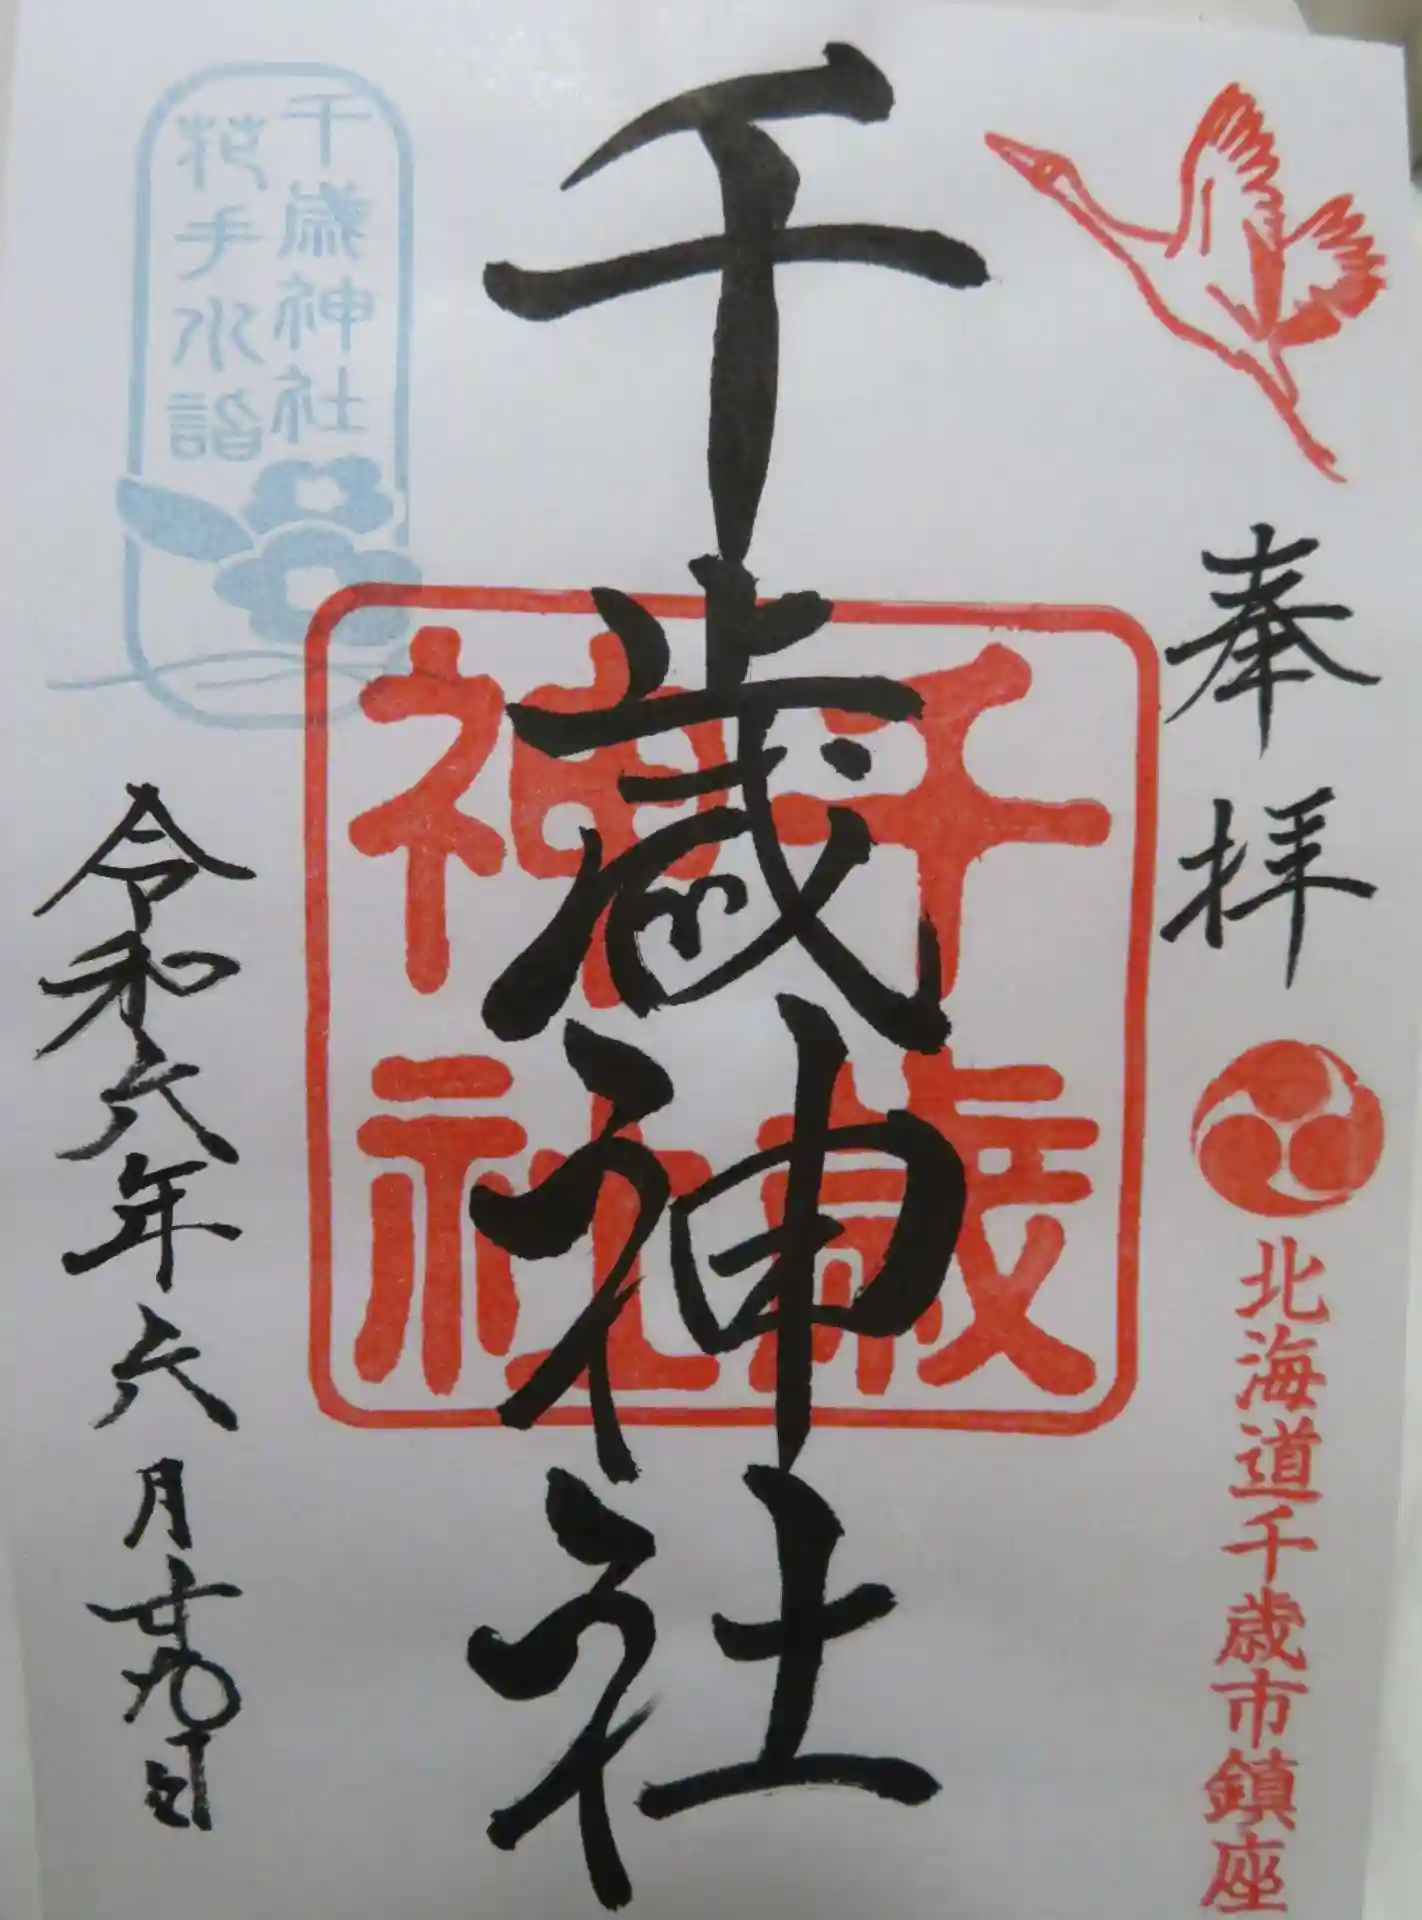 奉拝
北海道千歳市鎮座
千歳神社
千歳
神社
千歳神社
花手水詣
令和六年六月廿九日